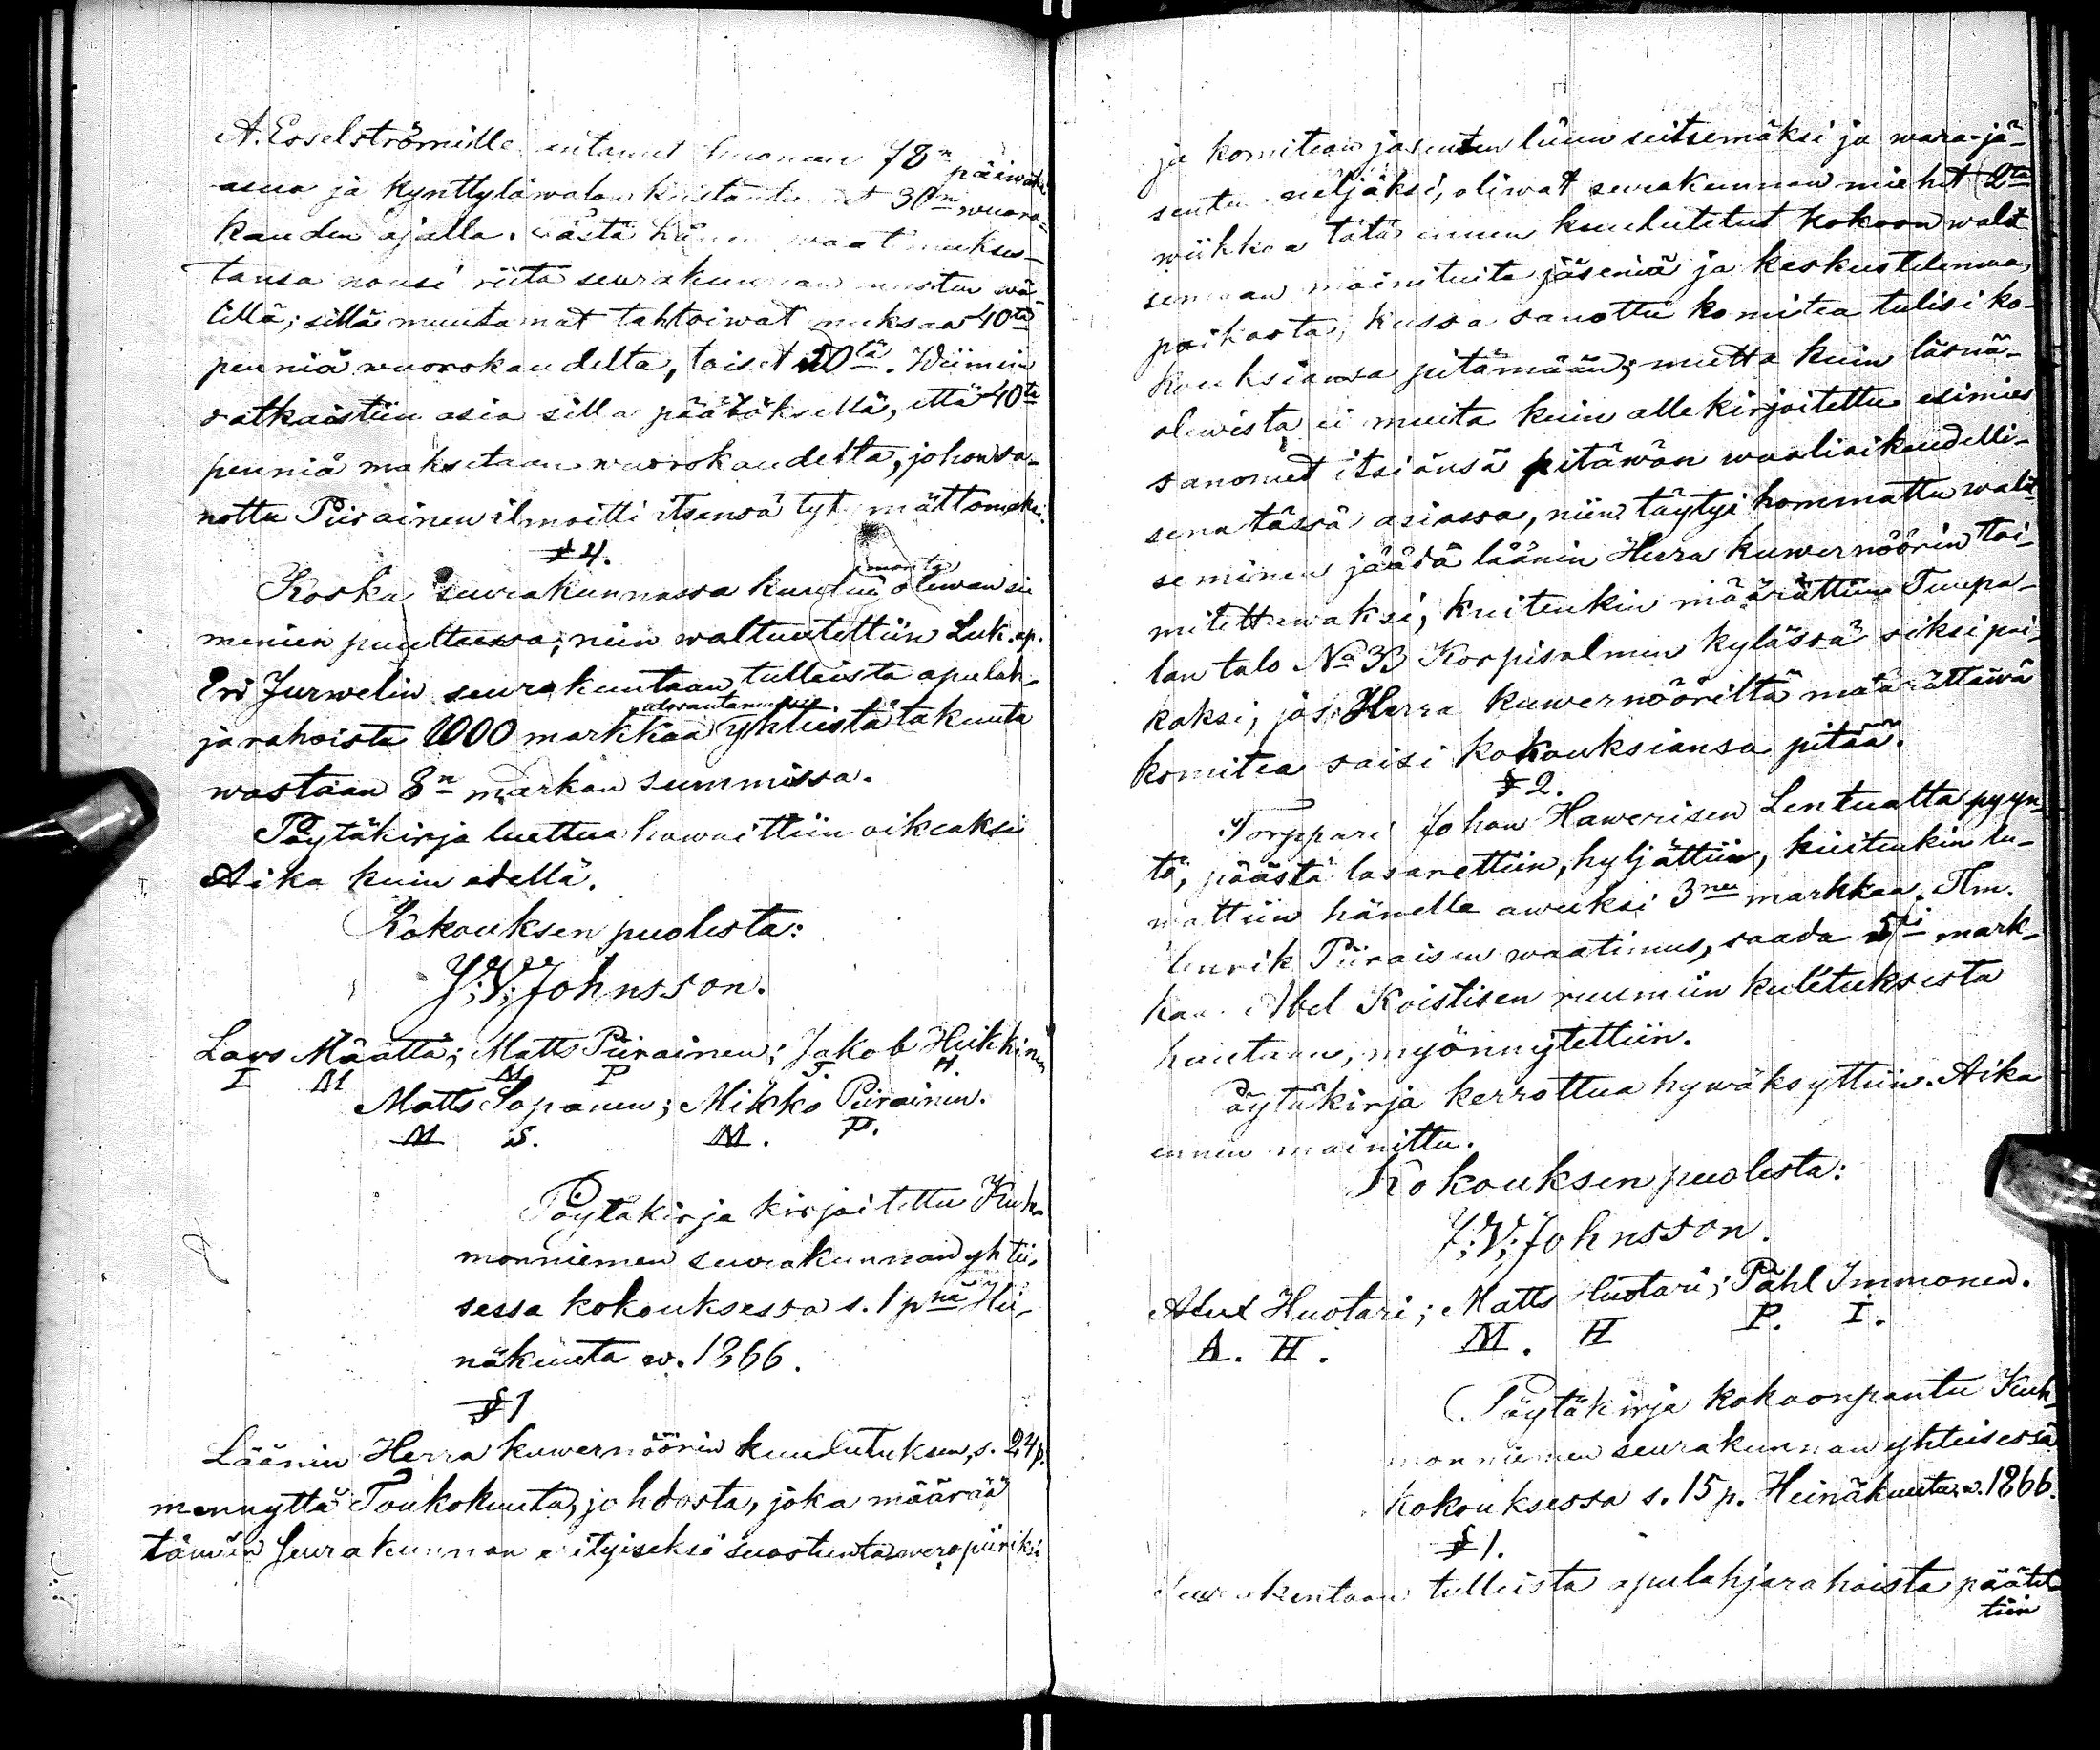 A. Esselströmille antanut huonen 78n päiwäksi
asua ja kynttyläwalon kustantanut 30n wuoro-
kauden ajalla. Tästä hänen waatimukses-
tansa nousi riita seurakunnan miesten wä-
lillä; sillä muutamat tahtoiwat maksaa 40tä
penniä wuorokaudelta, toiset 20tä. Wiimein
ratkaistiin asia sillä päätöksellä, että 40tä
penniä maksetaan wuorokaudelta, johon sa-
nottu Piirainen ilmoitti itsensä tytymättömäksi.
§ 4.
Koska seurakunnassa kuuluu monta olewan sie
menien puutteessa, niin waltuutettiin Luk. ap.
Erd Jurwelin seurakuntaan tulleista apulah-
jarahoista 1000 markkaa yhteistä takuuta
wastaan 8n markan summissa.
Pöytäkirja luettua hawaittiin oikeaksi
Aika kuin edellä.
Kokouksen puolesta:
J; V; Johnsson.
Lars Määttä; Matts Piirainen; Jakob Heikkinen
L M M P J H.
Matts Sopanen; Mikko Piirainen.
M S. M. P.
Pöytäkirja kirjoitettu Kuh-
monniemen seurakunnan yhtei-
sessa kokouksessa s. 1 pnä Hei-
näkuuta w. 1866.
§ 1
Läänin Herra kuwernöörin kuulutuksen, s. 24 p.
mennyttä Toukokuuta, johdosta, joka määrää
tämän Seurakunnan erityiseksi suostuntaweropiiriksi
ja komitean jäsenten luwun seitsemäksi ja wara-jä-
senten neljäksi, oliwat seurakunnan miehet 2ta
wiihkoa tätä ennen kuulutetut kokoon walit
semaan mainituita jäseniä ja keskustelemaan
paikasta, kussa sanottu komitea tulisi ko-
kouksiansa pitämään; mutta kuin läsnä-
olewista ei muita kuin allekirjoitettu esimies
sanonut itsiänsä pitäwän waalioikeudelli-
sena tässä asiassa, niin täytyi hommattu walit-
seminen jäädä läänin Herra kuwernöörin toi-
mitettawaksi, kuitenkin määrättiin Tuupa-
lan talo No 33 Korpisalmen kylässä siksi pai-
kaksi, jos Herra kuwernööriltä määrättäwä
komitea saisi kokouksiansa pitää.
§ 2.
Torppari Johan Hawerisen Lentualta pyyn-
tö, päästä lasarettiin, hyljättiin, kuitenkin lu-
wattiin hänelle awuksi 3ne markkaa. Tlm.
Henrik Piiraisen waatimus, saada 5si mark-
kaa Abel Koistisen ruumiin kuletuksesta
hautaan, myönnytettiin.
Pöytäkirja kerrottua hywäksyttiin. Aika
ennen mainittu.
Kokouksen puolesta:
J; V; Johnsson.
Huotari; Matts Huotari; Påhl Immonen.
A. H. M. H P. I.
Pöytäkirja kokoonpantu Kuh-
monniemen seurakunnan yhteisessä
kokouksessa s. 15 p. Heinäkuuta w. 1866.
§ 1.
Seurakuntaan tulleista apulahjarahoista päätet-
tiin